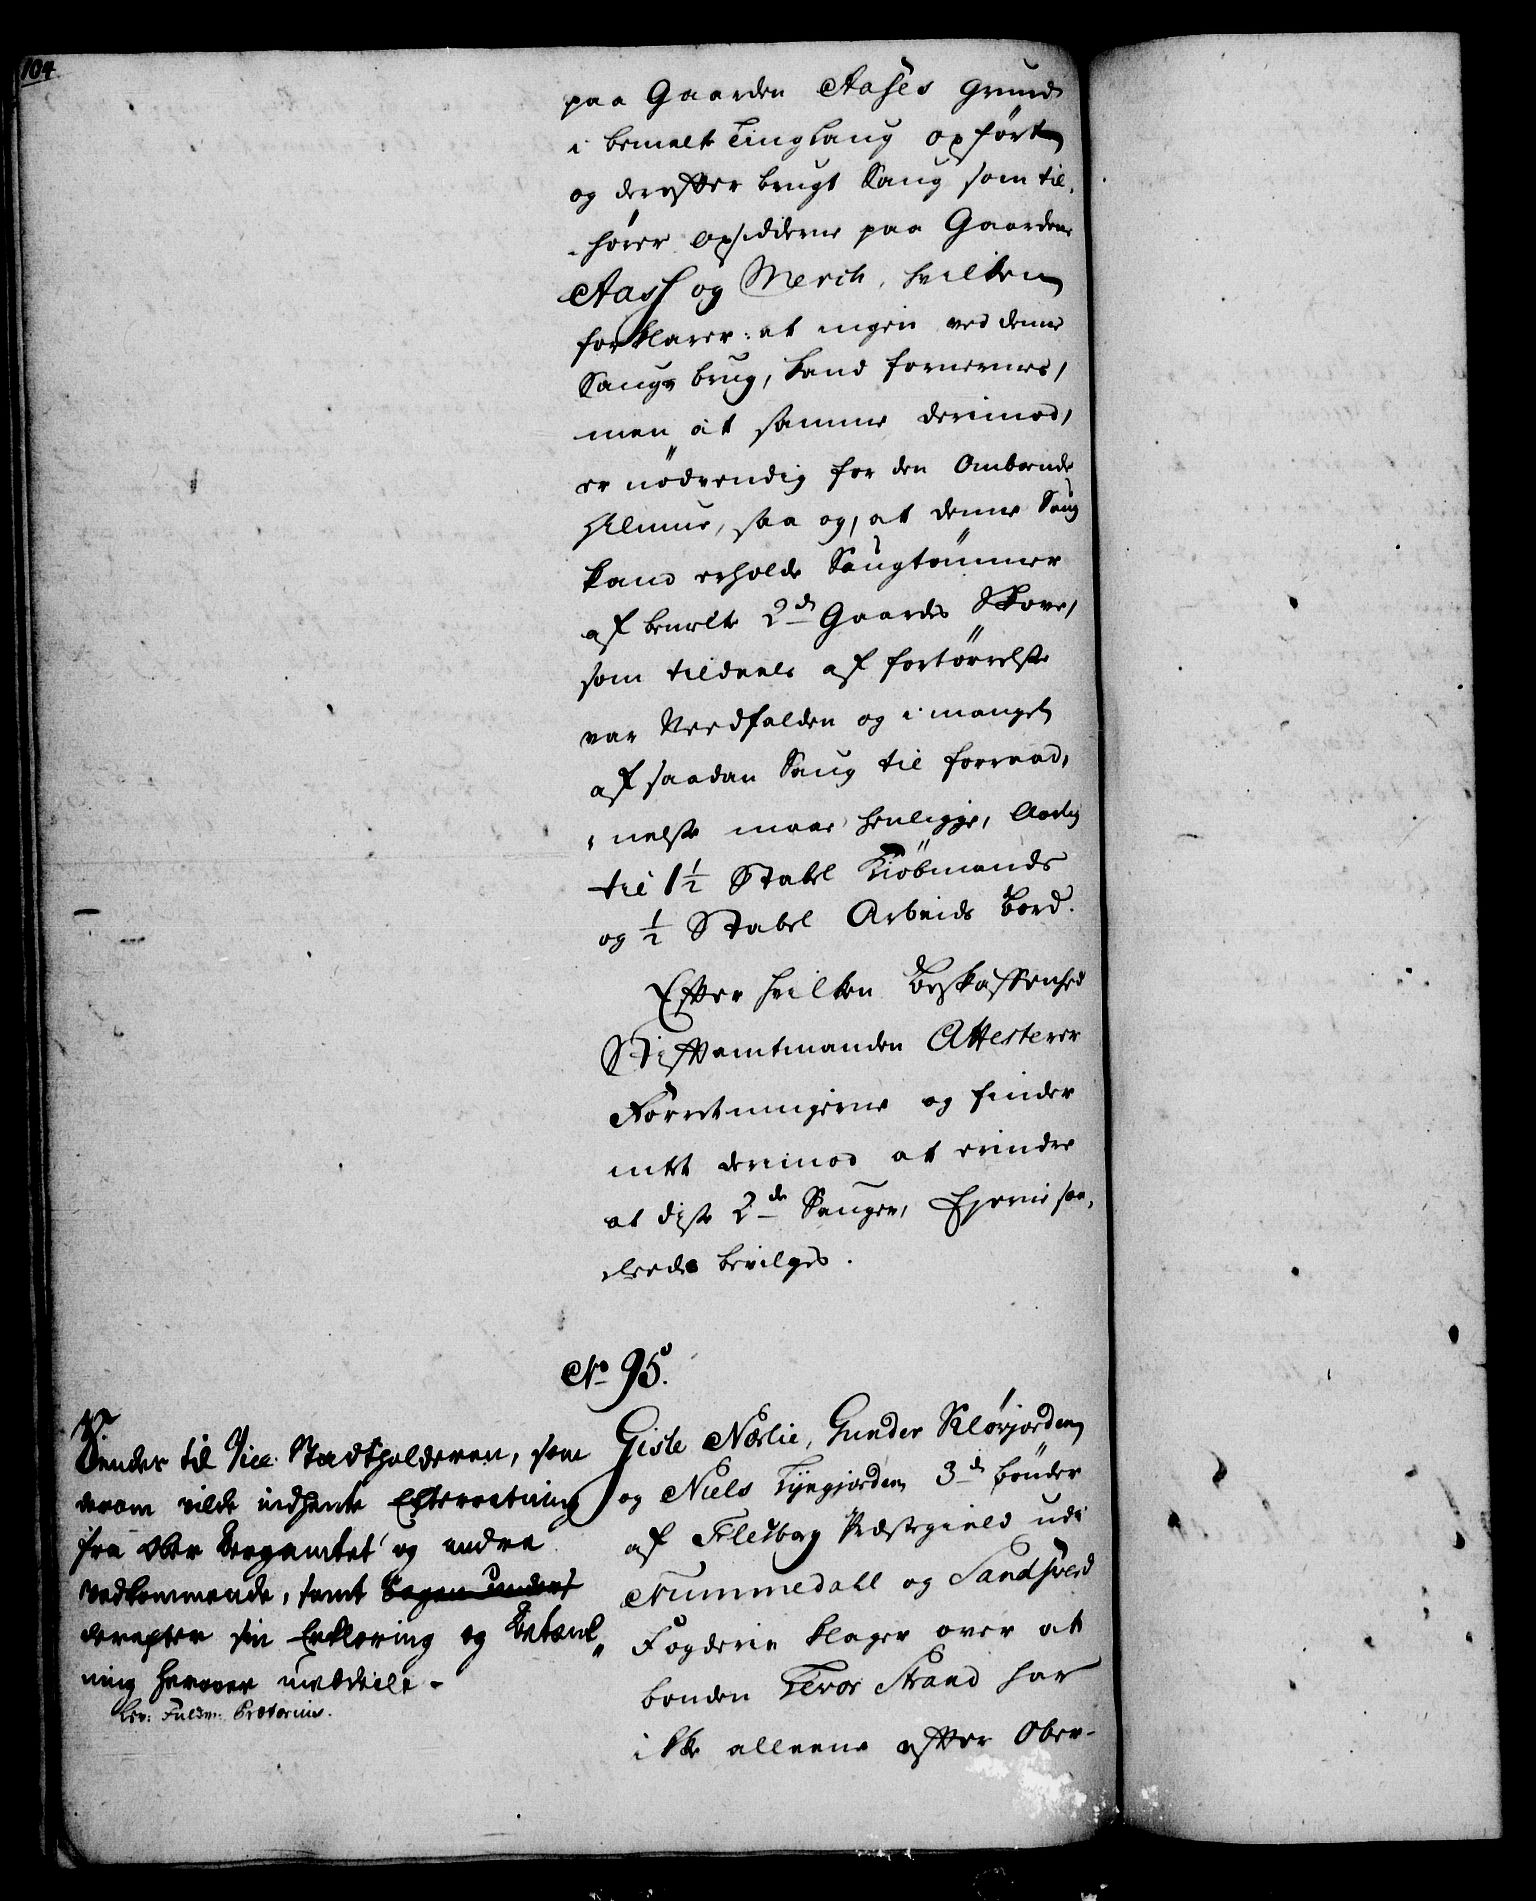 104
paa Gaarden Aases Grund
i bemelte Tinglaug opført
og derefter brugt Saug som til„
„hører Opsidderne paa Gaardene
Aass og Merch, hvilken
forklarer: at ingen ved denne
Saugs brug, kand fornermes,
men at samme derimod,
er nödvendig for den Omboende
Almue, saa og, at denne Saug
kand erholde Saugtömmer
af bemelte 2de Gaarders Skove,
som tildeels af fortörrelse
var Nedfalden og i mangel
af saadan Saug til forraad„
„nelse maae henligge, Aarlig
til 1½ Stabel Kiöbmands
og ½ Stabel Arbeids Bord.
Efter hvilken Beskaffenhed
Stiftamtmanden Attesterer
Forretningerne og finder
intet derimod at erindre
at disse 2de Sauger, Ejerne saa„
„leedes bevilges.
No 95.
Giste Nørlie, Gunder Kløvjorden
og Niels Tyngjorden 3de bönder
af Flesberg Præstegield udi
Nummedahl og Sandsverd
Fogderie klager over at
bonden Tvor Strand har
ikke alleene efter Ober-
Sendes til Vice Stadtholderen, som
derom vilde indhente Efterretning
fra Ober Bergamtet og andre
vedkommende, samt Sagen under
derefter sin Erklæring og Betænk„
ning herover meddeele.
Lev: Fuldm: Prætorius.